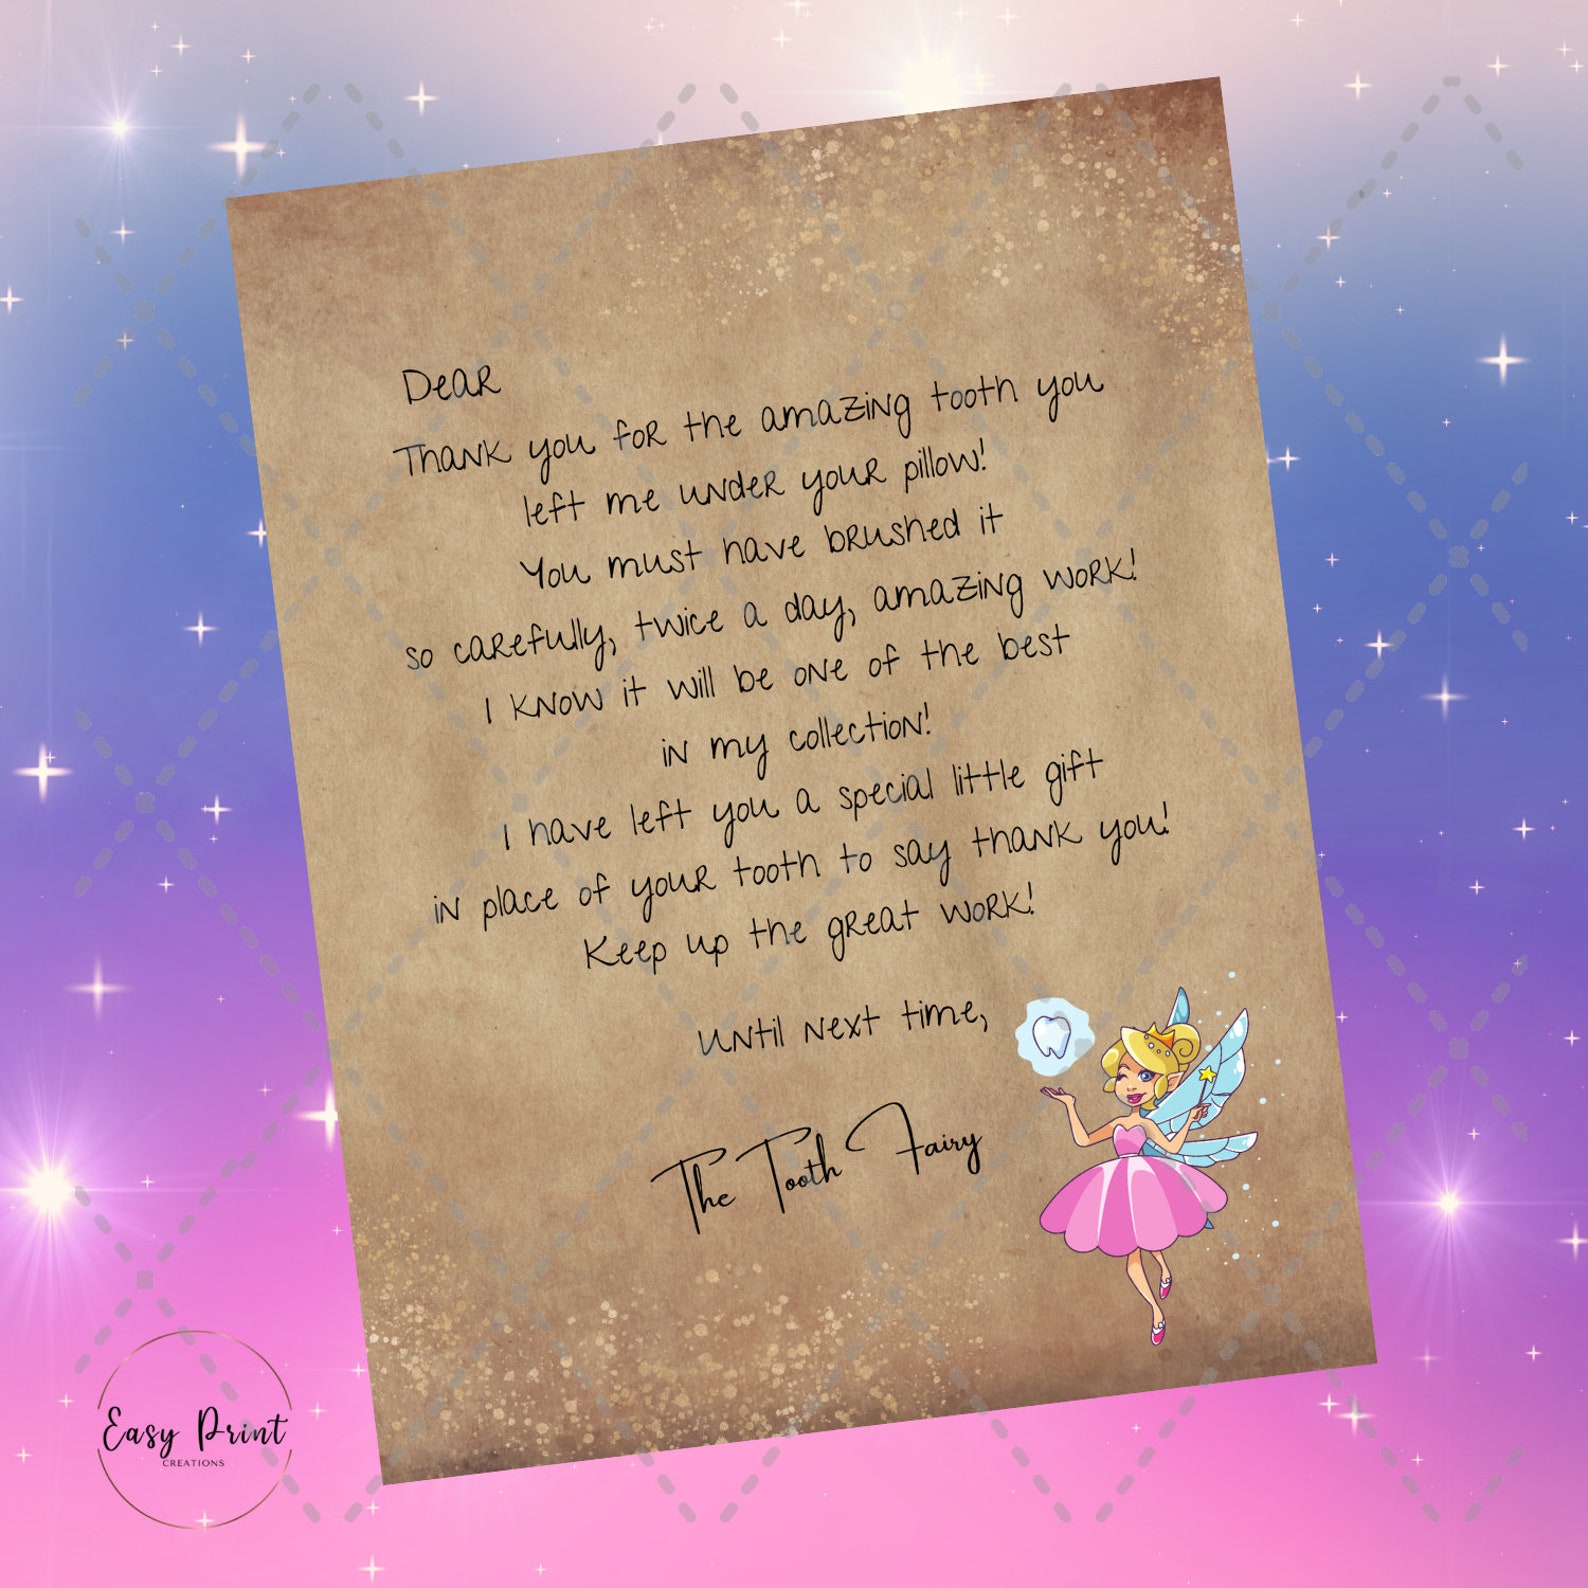 Dear
Thank you for the amazing tooth you
left me under your pillow!
You must have brushed it
so carefully, twice a day, amazing work!
I know it will be one of the best
in my collection!
I have left you a special little gift
in place of your tooth to say thank you!
Keep up the great work!
Until next time,
The Tooth Fairy
Easy Print
CREATIONS